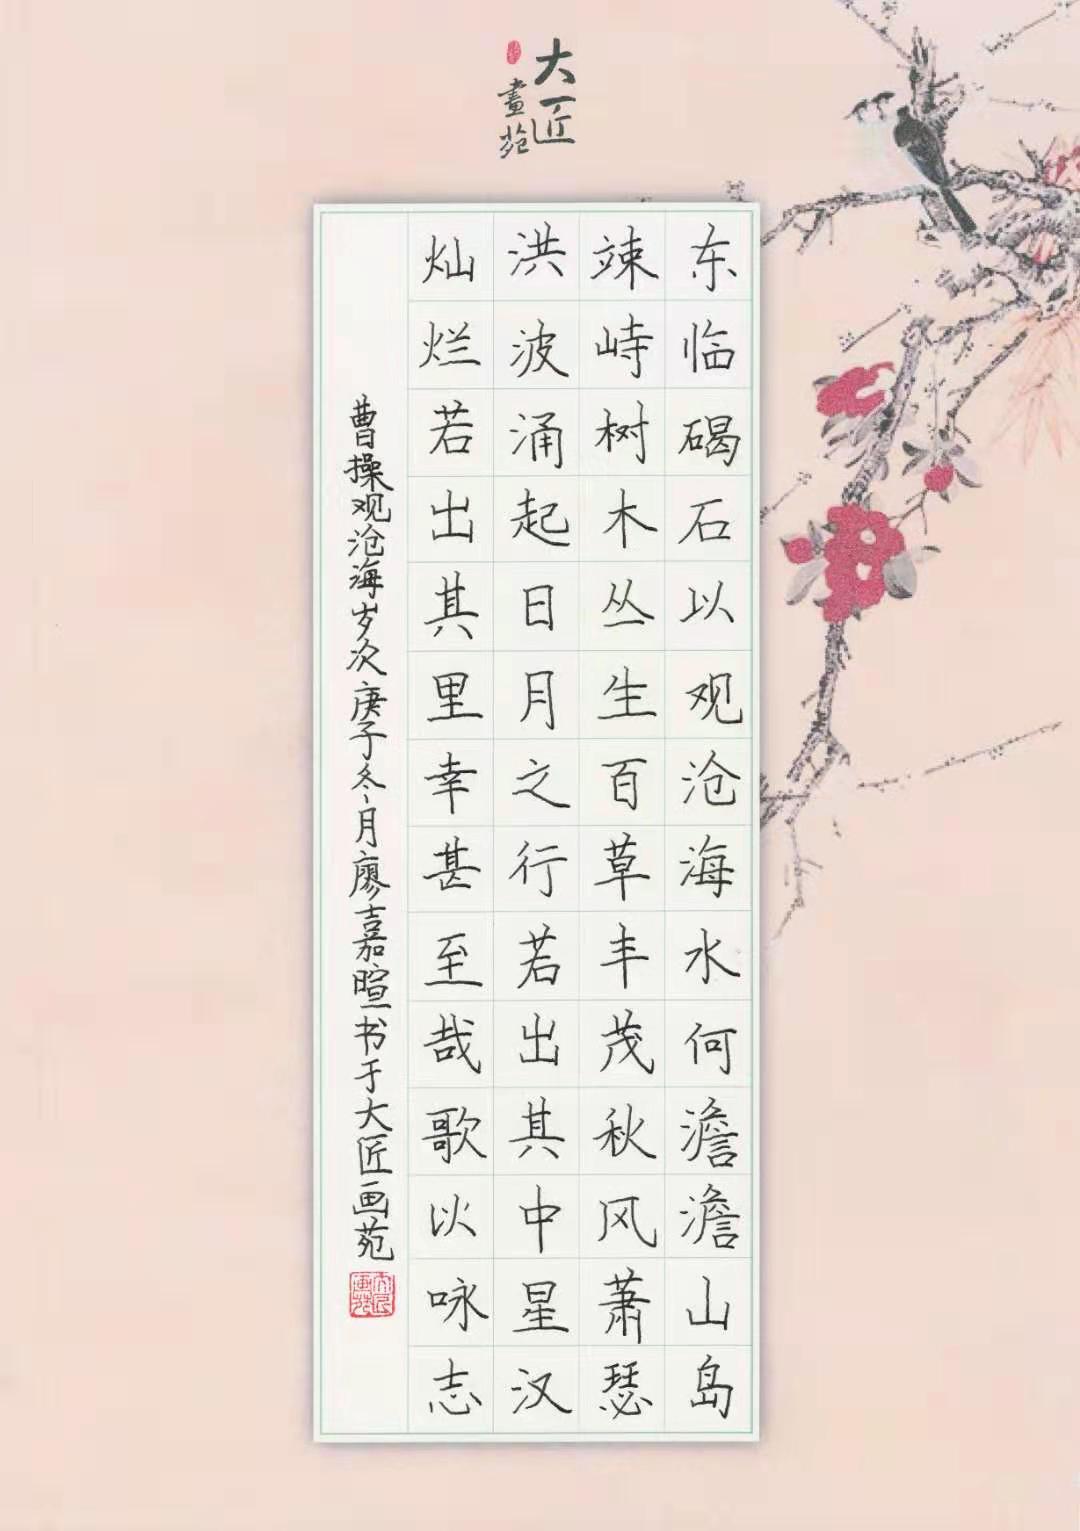 大匠
畫苑
东临碣石以观沧海水何澹澹山岛
竦峙树木丛生百草丰茂秋风萧瑟
洪波涌起日月之行若出其中星汉
灿烂若出其里幸甚至哉歌以咏志
曹操观沧海岁次庚子冬月廖嘉暄书于大匠画苑
大匠画苑